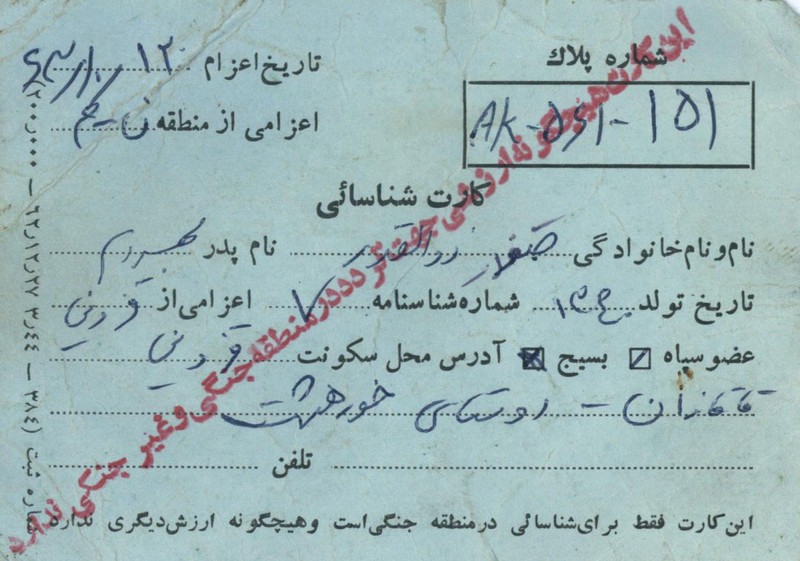 شماره پلاك
AK-اسا-۱۵۱
تاریخ اعزام ۱۲ / ۱۰ / ۶۳
اعزامی از منطقه
کارت شناسائی
نام و نام خانوادگی صفدر ذوالقدر نام پدر بهرام
تاریخ تولد شماره شناسنامه ۷ اعزامی از قزوین
عضو سپاه بسیج آدرس محل سکونت قزوین
قاقازان - روستای خورهشت
تلفن
این کارت فقط برای شناسائی در منطقه جنگی است و هیچگونه ارزش دیگری ندارد
این کارت هیچگونه ارزشی جهت تردد در منطقه جنگی و غیر جنگی ندارد
شماره ثبت (۳۸۴ — ۳ر۴۴ ۶۲ر۱۲ر۲۷ — ۲۰۰ر۰۰۰